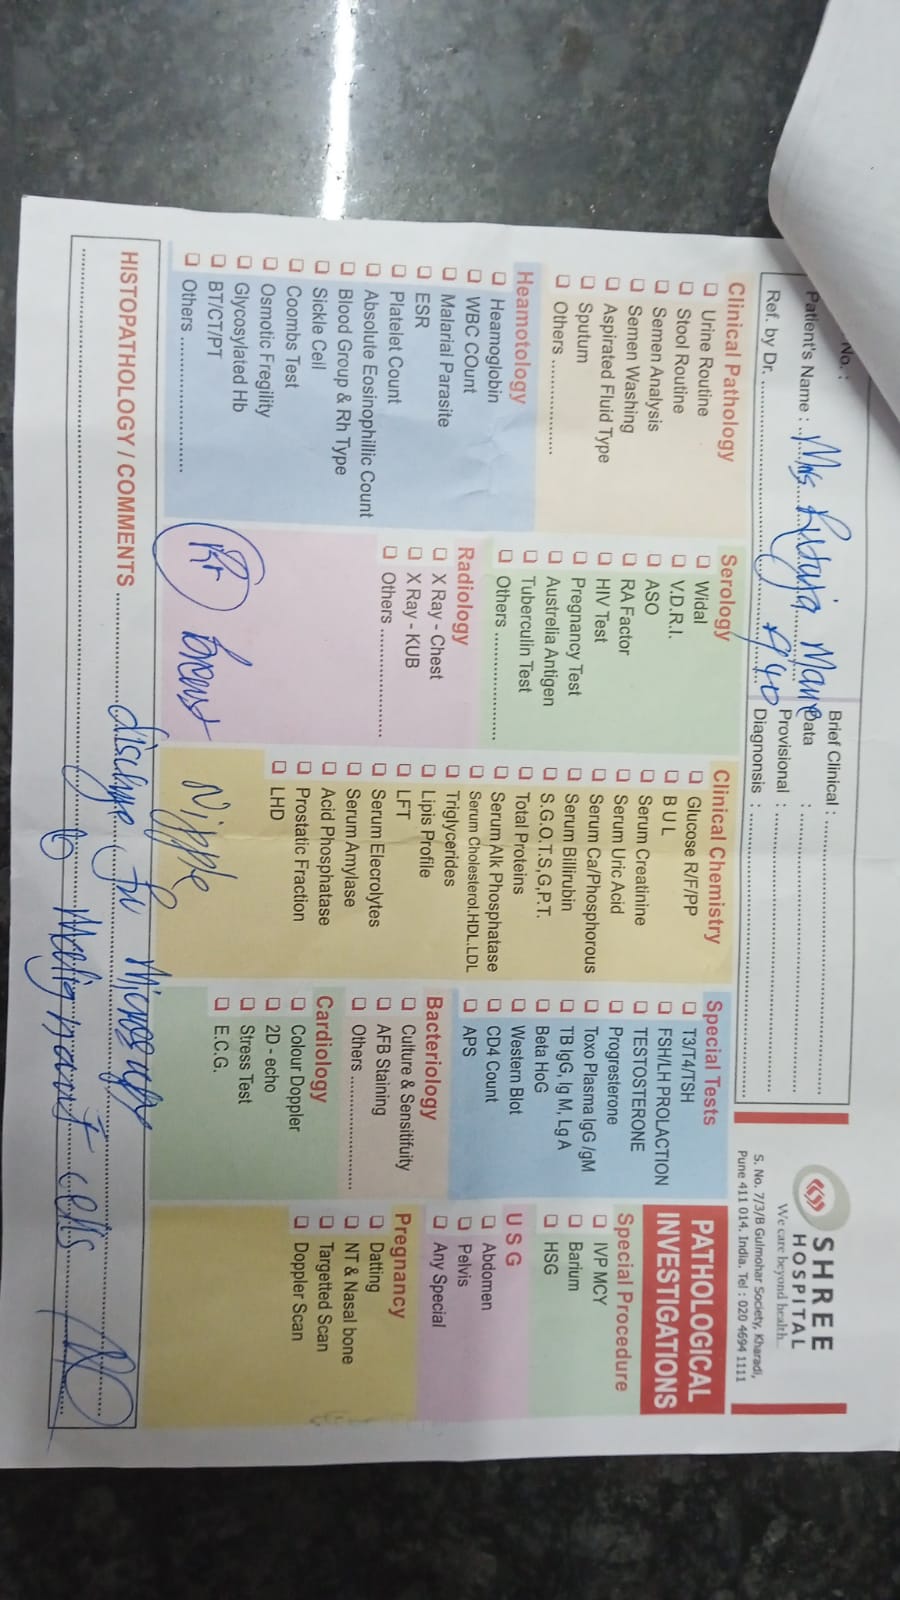 No. :
Patient's Name : Mrs. Rutuja Mane
Ref. by Dr. .......... 40
Brief Clinical :
Data :
Provisional :
Diagnonsis :
SHREE
HOSPITAL
We care beyond health...
S. No. 7/3/B Gulmohar Society, Kharadi,
Pune 411 014. India. Tel : 020 4694 1111
PATHOLOGICAL
INVESTIGATIONS
Clinical Pathology
Urine Routine
Stool Routine
Semen Analysis
Semen Washing
Aspirated Fluid Type
Sputum
Others ....................
Heamotology
Heamoglobin
WBC COunt
Malarial Parasite
ESR
Platelet Count
Absolute Eosinophillic Count
Blood Group & Rh Type
Sickle Cell
Coombs Test
Osmotic Fregility
Glycosylated Hb
BT/CT/PT
Others ....................
Serology
Widal
V.D.R.I.
ASO
RA Factor
HIV Test
Pregnancy Test
Austrelia Antigen
Tuberculin Test
Others ....................
Radiology
X Ray - Chest
X Ray - KUB
Others ....................
Clinical Chemistry
Glucose R/F/PP
B U L
Serum Creatinine
Serum Uric Acid
Serum Ca/Phosphorous
Serum Billirubin
S.G.O.T.S,G,P.T.
Total Proteins
Serum Alk Phosphatase
Serum Cholesterol.HDL.LDL
Triglycerides
Lipis Profile
LFT
Serum Elecrolytes
Serum Amylase
Acid Phosphatase
Prostatic Fraction
LHD
Special Tests
T3/T4/TSH
FSH/LH PROLACTION
TESTOSTERONE
Progresterone
Toxo Plasma IgG /gM
TB IgG, Ig M, Lg A
Beta HoG
Western Blot
CD4 Count
APS
Bacteriology
Culture & Sensitifuity
AFB Staining
Others ....................
Cardiology
Colour Doppler
2D - echo
Stress Test
E.C.G.
Special Procedure
IVP MCY
Barium
HSG
U S G
Abdomen
Pelvis
Any Special
Pregnancy
Datting
NT & Nasal bone
Targetted Scan
Doppler Scan
Breast Nipple
HISTOPATHOLOGY / COMMENTS .......... discharge for
malignant cells